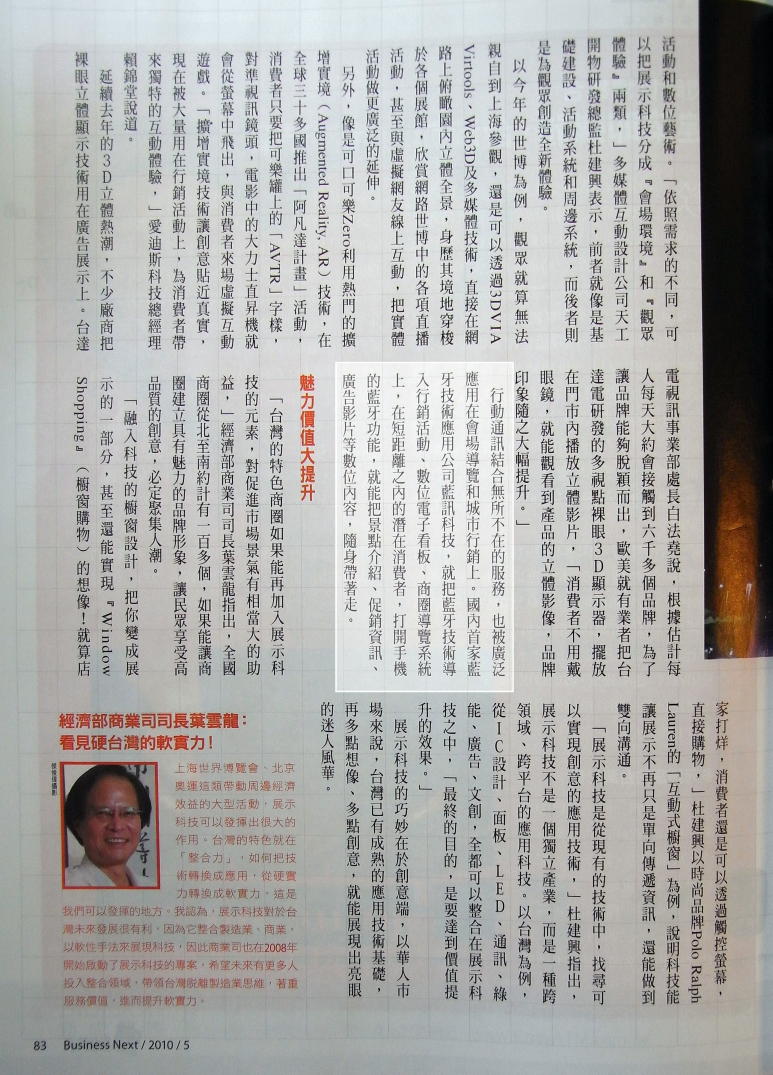 活動和數位藝術。「依照需求的不同，可
以把展示科技分成『會場環境』和『觀眾
體驗』兩類，」多媒體互動設計公司天工
開物研發總監杜建興表示，前者就像是基
礎建設、活動系統和周邊系統，而後者則
是為觀眾創造全新體驗。
以今年的世博為例，觀眾就算無法
親自到上海參觀，還是可以透過3DVIA
Virtools、Web3D及多媒體技術，直接在網
路上俯瞰園內立體全景，身歷其境地穿梭
於各個展館，欣賞網路世博中的各項直播
活動，甚至與虛擬網友線上互動，把實體
活動做更廣泛的延伸。
另外，像是可口可樂Zero利用熱門的擴
增實境（Augmented Reality, AR）技術，在
全球三十多國推出「阿凡達計畫」活動，
消費者只要把可樂罐上的「AVTR」字樣，
對準視訊鏡頭，電影中的大力士直昇機就
會從螢幕中飛出，與消費者來場虛擬互動
遊戲。「擴增實境技術讓創意貼近真實，
現在被大量用在行銷活動上，為消費者帶
來獨特的互動體驗，」愛迪斯科技總經理
賴錦堂說道。
延續去年的3D立體熱潮，不少廠商把
裸眼立體顯示技術用在廣告展示上。台達
電視訊事業部處長白法堯說，根據估計每
人每天大約會接觸到六千多個品牌，為了
讓品牌能夠脫穎而出，歐美就有業者把台
達電研發的多視點裸眼3D顯示器，擺放
在門市內播放立體影片，「消費者不用戴
眼鏡，就能觀看到產品的立體影像，品牌
印象隨之大幅提升。」
行動通訊結合無所不在的服務，也被廣泛
應用在會場導覽和城市行銷上。國內首家藍
牙技術應用公司藍訊科技，就把藍牙技術導
入行銷活動、數位電子看板、商圈導覽系統
上，在短距離之內的潛在消費者，打開手機
的藍牙功能，就能把景點介紹、促銷資訊、
廣告影片等數位內容，隨身帶著走。
魅力價值大提升
「台灣的特色商圈如果能再加入展示科
技的元素，對促進市場景氣有相當大的助
益，」經濟部商業司司長葉雲龍指出，全國
商圈從北至南約計有一百多個，如果能讓商
圈建立具有魅力的品牌形象，讓民眾享受高
品質的創意，必定聚集人潮。
「融入科技的櫥窗設計，把你變成展
示的一部分，甚至還能實現『Window
Shopping』（櫥窗購物）的想像！就算店
家打烊，消費者還是可以透過觸控螢幕，
直接購物，」杜建興以時尚品牌Polo Ralph
Lauren的「互動式櫥窗」為例，說明科技能
讓展示不再只是單向傳遞資訊，還能做到
雙向溝通。
「展示科技是從現有的技術中，找尋可
以實現創意的應用技術，」杜建興指出，
展示科技不是一個獨立產業，而是一種跨
領域、跨平台的應用科技。以台灣為例，
從IC設計、面板、LED、通訊、綠
能、廣告、文創，全都可以整合在展示科
技之中，「最終的目的，是要達到價值提
升的效果。」
展示科技的巧妙在於創意端，以華人市
場來說，台灣已有成熟的應用技術基礎，
再多點想像、多點創意，就能展現出亮眼
的迷人風華。
經濟部商業司司長葉雲龍：
看見硬台灣的軟實力！
上海世界博覽會、北京
奧運這類帶動周邊經濟
效益的大型活動，展示
科技可以發揮出很大的
作用。台灣的特色就在
「整合力」，如何把技
術轉換成應用，從硬實
力轉換成軟實力，這是
我們可以發揮的地方。我認為，展示科技對於台
灣未來發展很有利，因為它整合製造業、商業，
以軟性手法來展現科技，因此商業司也在2008年
開始啟動了展示科技的專案，希望未來有更多人
投入整合領域，帶領台灣脫離製造業思維，著重
服務價值，進而提升軟實力。
83 Business Next / 2010 / 5